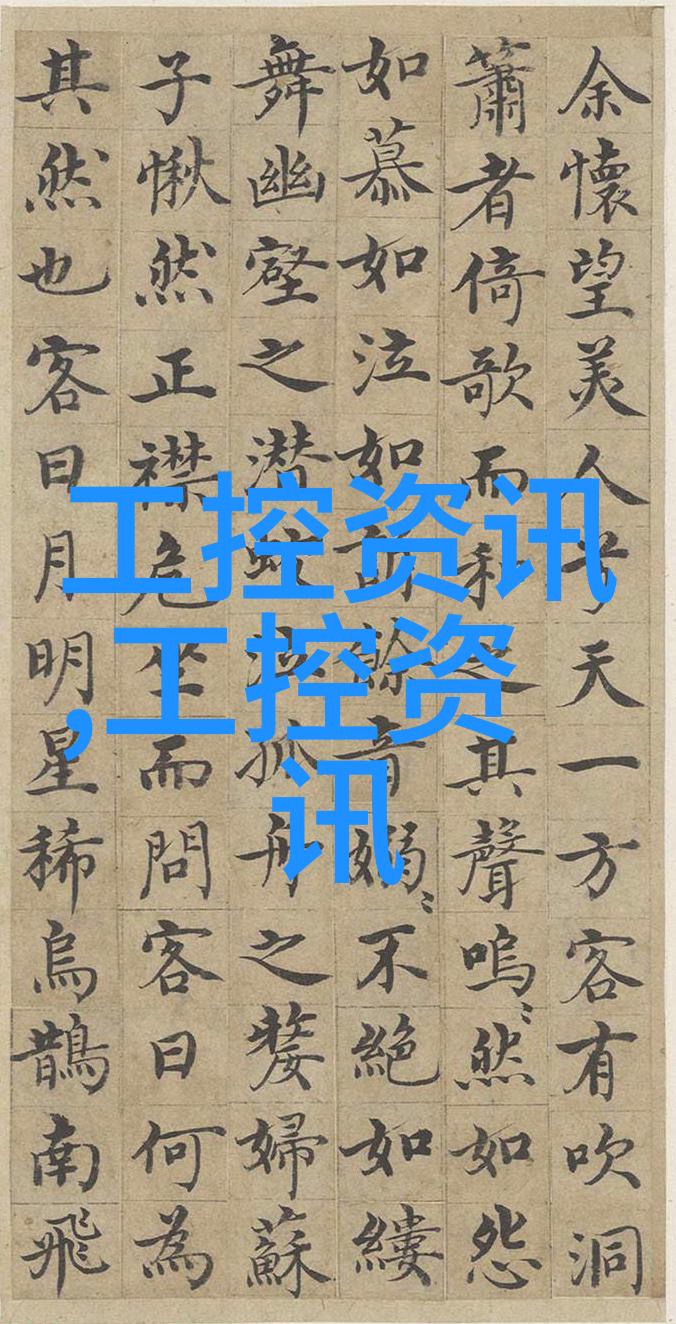 余懷望美人兮天一方客有吹洞
簫者倚歌而和之其聲嗚〻然如怨
如慕如泣如訴餘音嫋〻不絕如縷
舞幽壑之潜蛟泣孤舟之嫠婦蘇
子愀然正襟危坐而問客曰何為
其然也客曰月明星稀烏鵲南飛
工控资讯
,工控资
讯